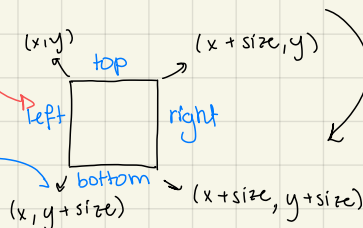 (x,y)
(x + size, y)
top
left
right
bottom
(x, y + size)
(x+size, y+size)